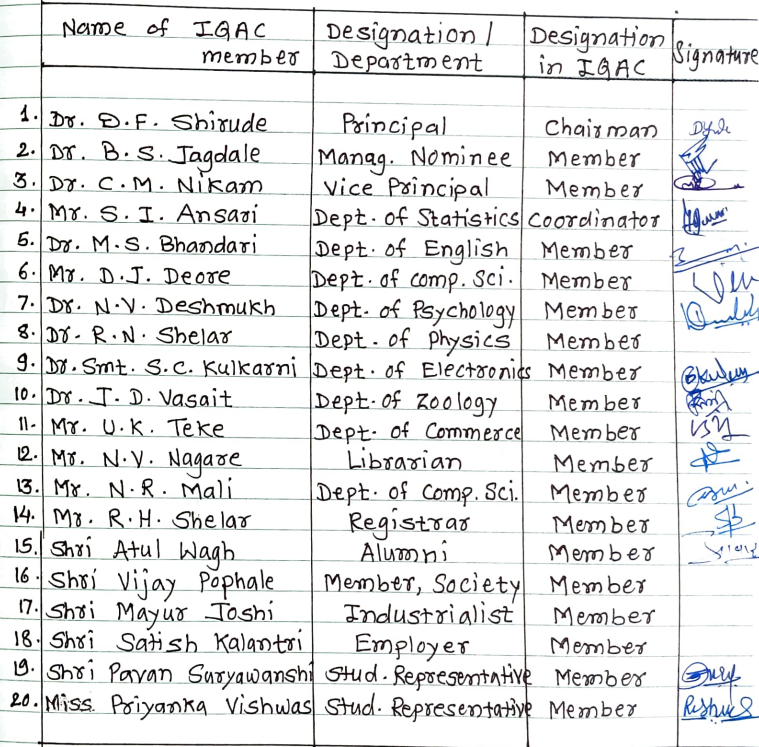 Name of IQAC member Designation / Department Designation in IQAC Signature
1. Dr. D.F. Shirude Principal Chairman
2. Dr. B.S. Jagdale Manag. Nominee Member
3. Dr. C.M. Nikam Vice Principal Member
4. Mr. S.I. Ansari Dept. of Statistics Coordinator
5. Dr. M.S. Bhandari Dept. of English Member
6. Mr. D.J. Deore Dept. of comp. Sci. Member
7. Dr. N.V. Deshmukh Dept. of Psychology Member
8. Dr. R.N. Shelar Dept. of Physics Member
9. Dr. Smt. S.C. Kulkarni Dept. of Electronics Member
10. Dr. J.D. Vasait Dept. of Zoology Member
11. Mr. U.K. Teke Dept. of Commerce Member
12. Mr. N.V. Nagare Librarian Member
13. Mr. N.R. Mali Dept. of Comp. Sci. Member
14. Mr. R.H. Shelar Registrar Member
15. Shri Atul Wagh Alumni Member
16. Shri Vijay Pophale Member, Society Member
17. Shri Mayur Joshi Industrialist Member
18. Shri Satish Kalantri Employer Member
19. Shri Pavan Suryawanshi Stud. Representative Member
20. Miss. Priyanka Vishwas Stud. Representative Member